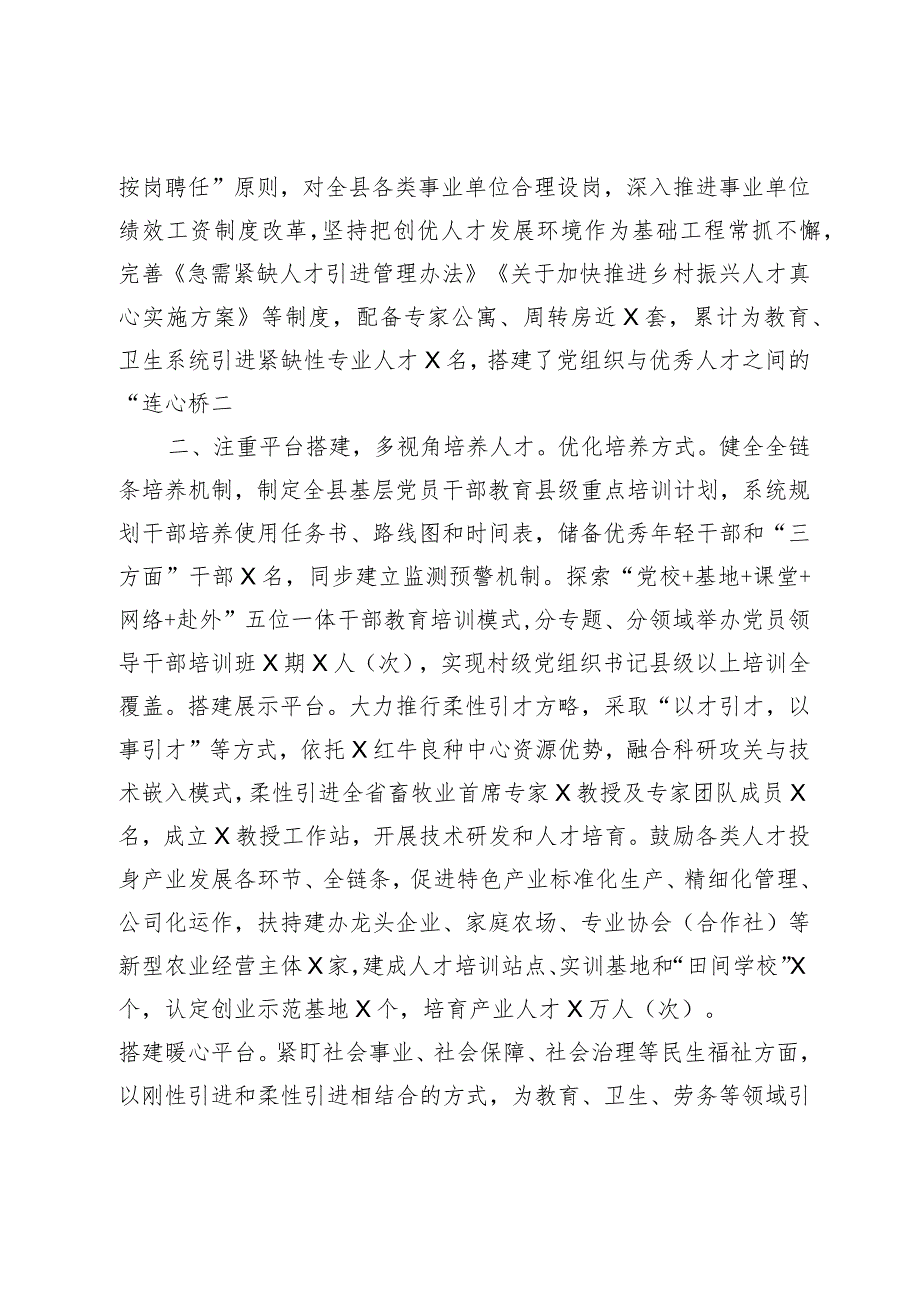 按岗聘任”原则，对全县各类事业单位合理设岗，深入推进事业单位
绩效工资制度改革,坚持把创优人才发展环境作为基础工程常抓不懈，
完善《急需紧缺人才引进管理办法》《关于加快推进乡村振兴人才真
心实施方案》等制度，配备专家公寓、周转房近X套，累计为教育、
卫生系统引进紧缺性专业人才X名，搭建了党组织与优秀人才之间的
“连心桥二
二、注重平台搭建，多视角培养人才。优化培养方式。健全全链
条培养机制，制定全县基层党员干部教育县级重点培训计划，系统规
划干部培养使用任务书、路线图和时间表，储备优秀年轻干部和“三
方面”干部X名，同步建立监测预警机制。探索“党校+基地+课堂+
网络+赴外”五位一体干部教育培训模式,分专题、分领域举办党员领
导干部培训班X期X人（次），实现村级党组织书记县级以上培训全
覆盖。搭建展示平台。大力推行柔性引才方略，采取“以才引才，以
事引才”等方式，依托X红牛良种中心资源优势，融合科研攻关与技
术嵌入模式,柔性引进全省畜牧业首席专家X教授及专家团队成员X
名，成立X教授工作站，开展技术研发和人才培育。鼓励各类人才投
身产业发展各环节、全链条，促进特色产业标准化生产、精细化管理、
公司化运作，扶持建办龙头企业、家庭农场、专业协会（合作社）等
新型农业经营主体X家,建成人才培训站点、实训基地和“田间学校”X
个，认定创业示范基地X个，培育产业人才X万人（次）。
搭建暖心平台。紧盯社会事业、社会保障、社会治理等民生福祉方面，
以刚性引进和柔性引进相结合的方式，为教育、卫生、劳务等领域引